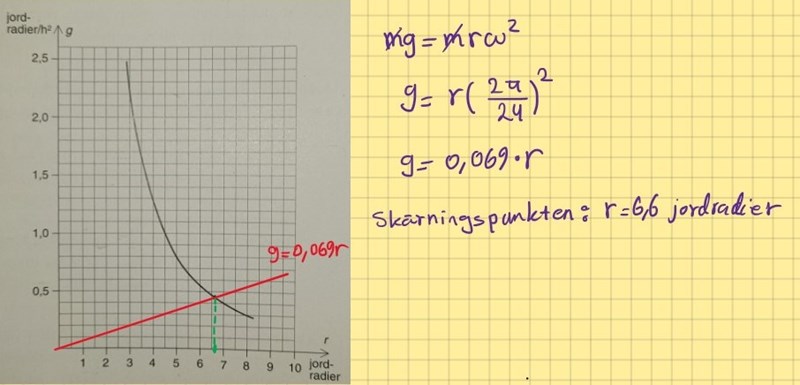 jord-
radier/h² g
2,5
2,0
1,5
1,0
0,5
g=0,069r
r
1 2 3 4 5 6 7 8 9 10 jord-
radier
mg = mrω²
g = r(2π/24)²
g = 0,069·r
Skärningspunkten: r=6,6 jordradier